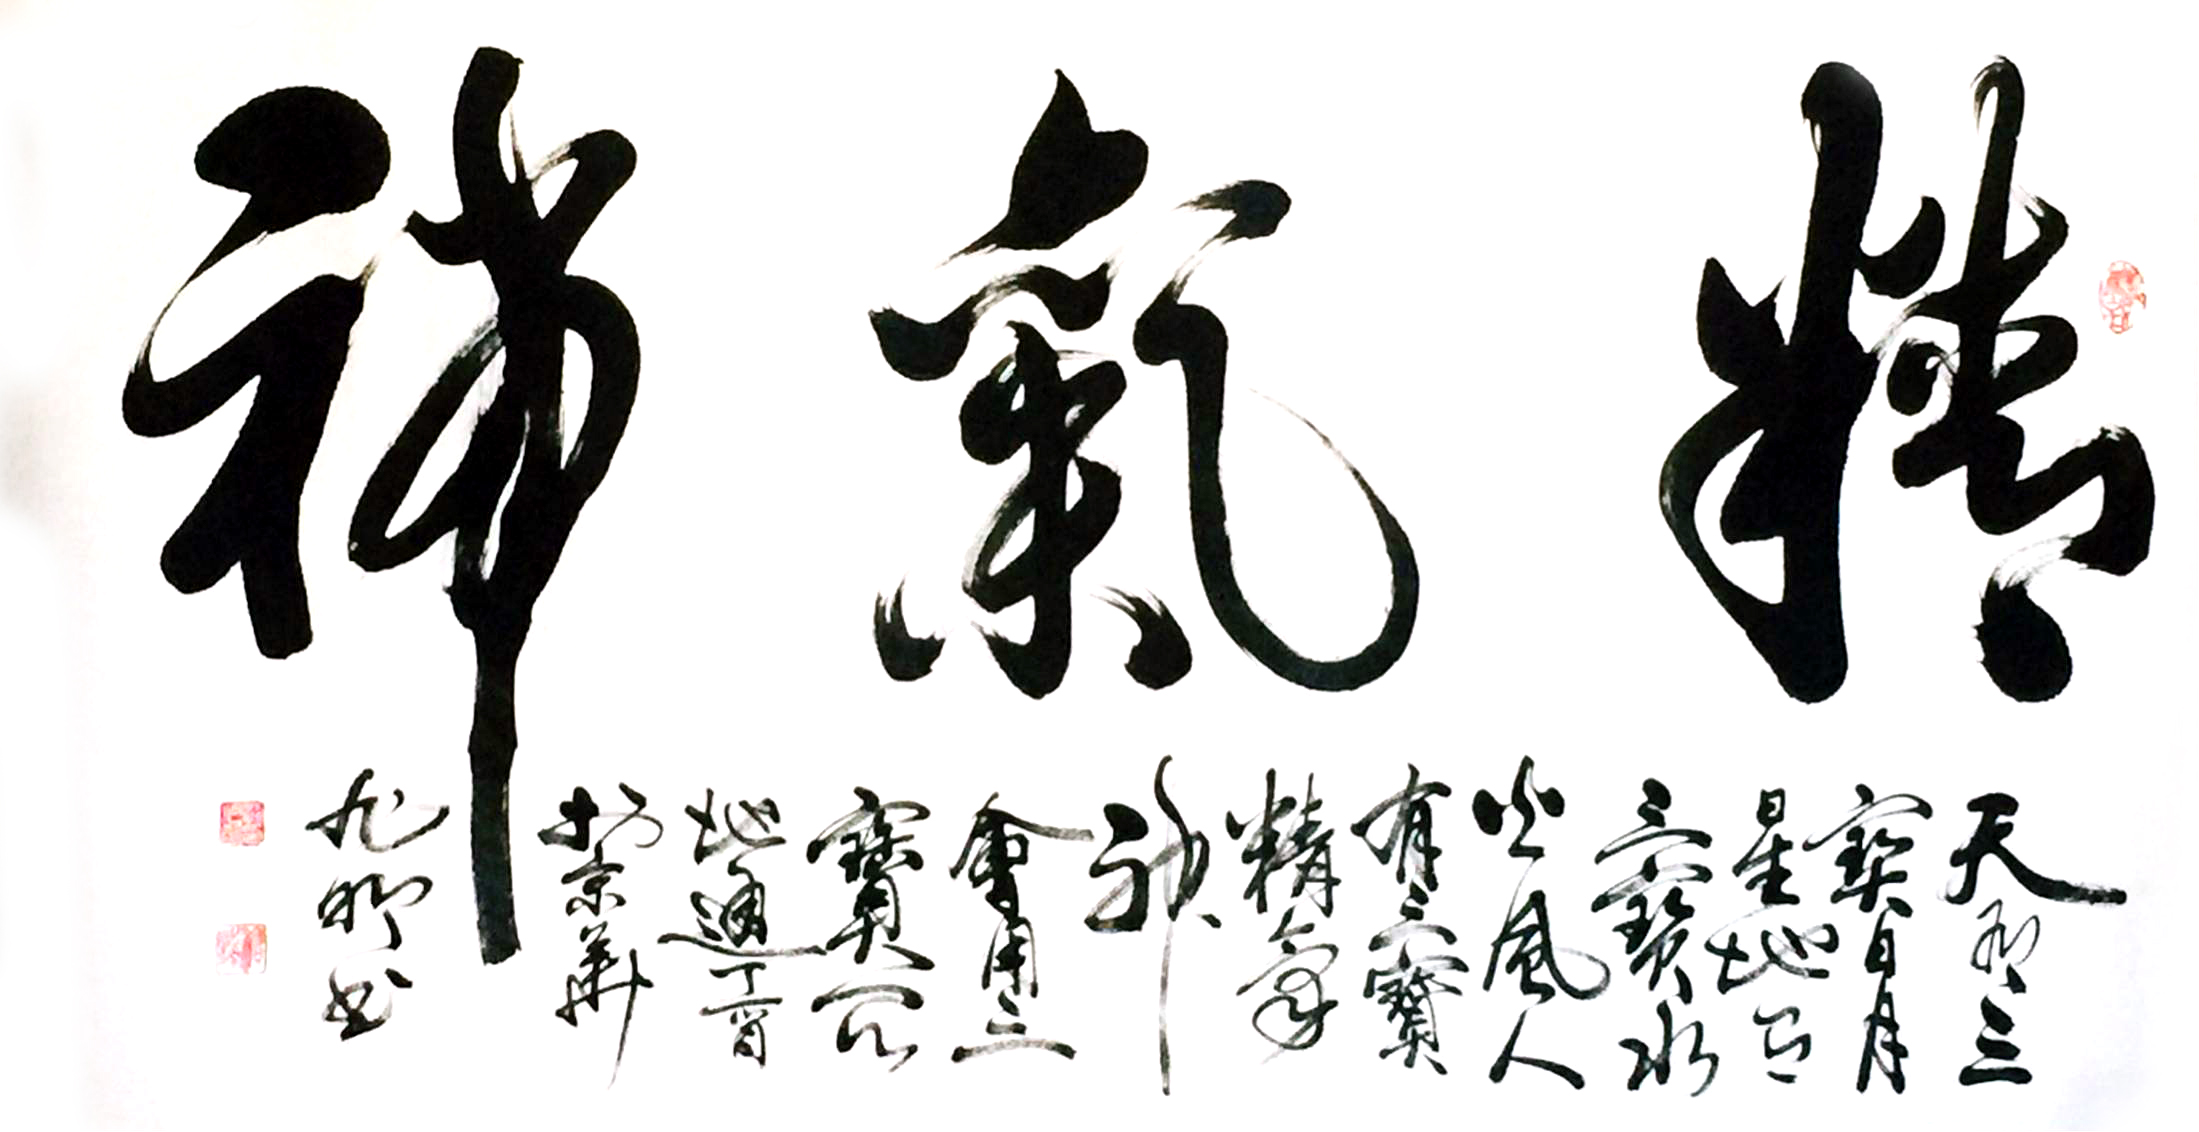 精氣神
天有三
寶日月
星地有
三寶水
火風人
有三寶
精氣
神
會用三
寶天
地通丁酉
於京華
书